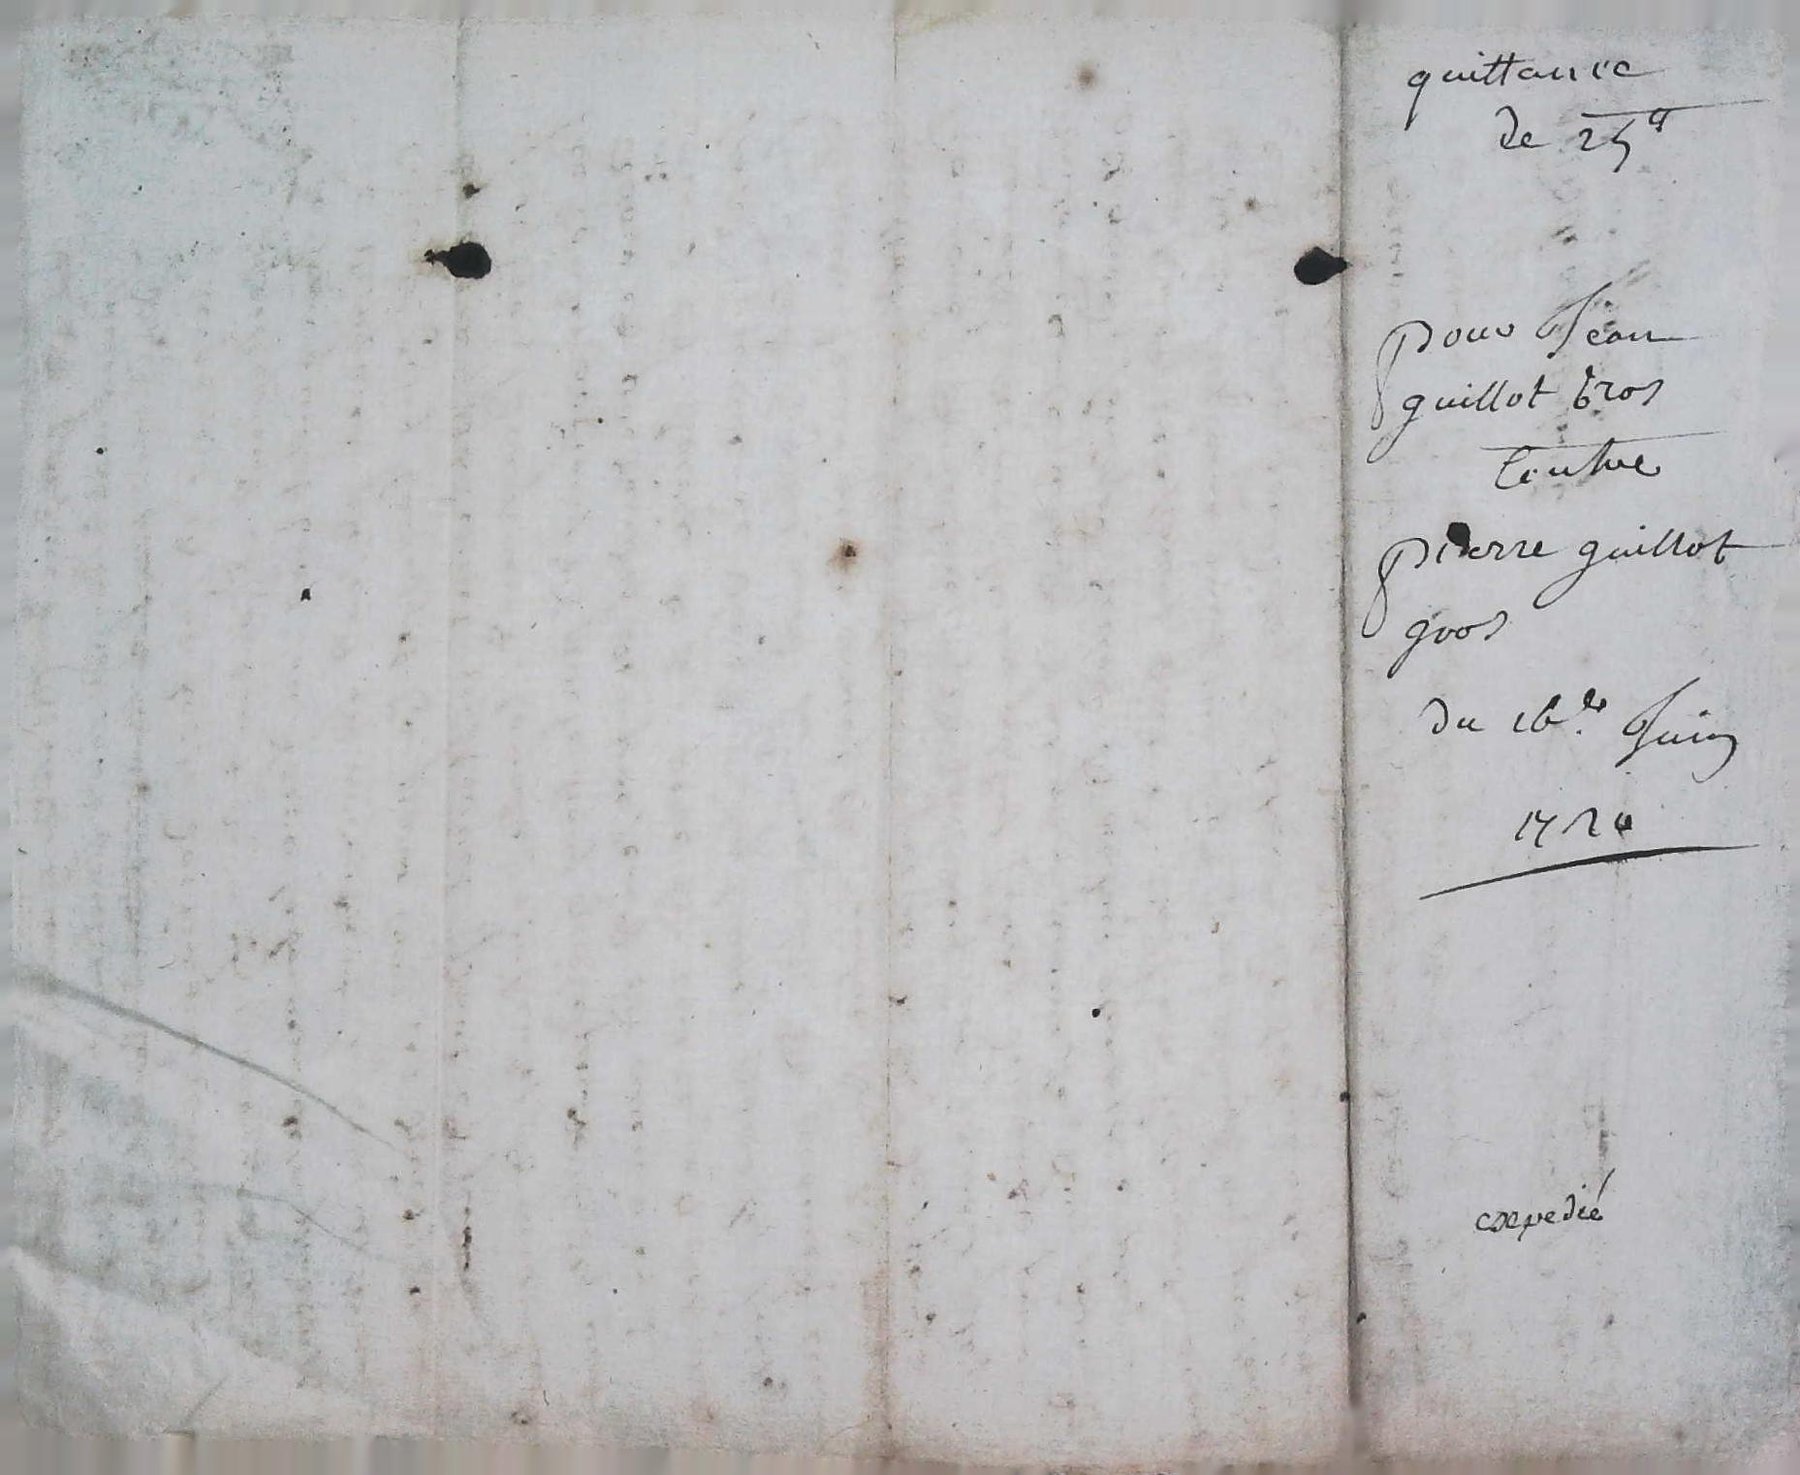 quittance
de 25#
pour Jean
guillot Gros
Contre
pierre guillot
gros
du 16.e Juin
1724
expedié